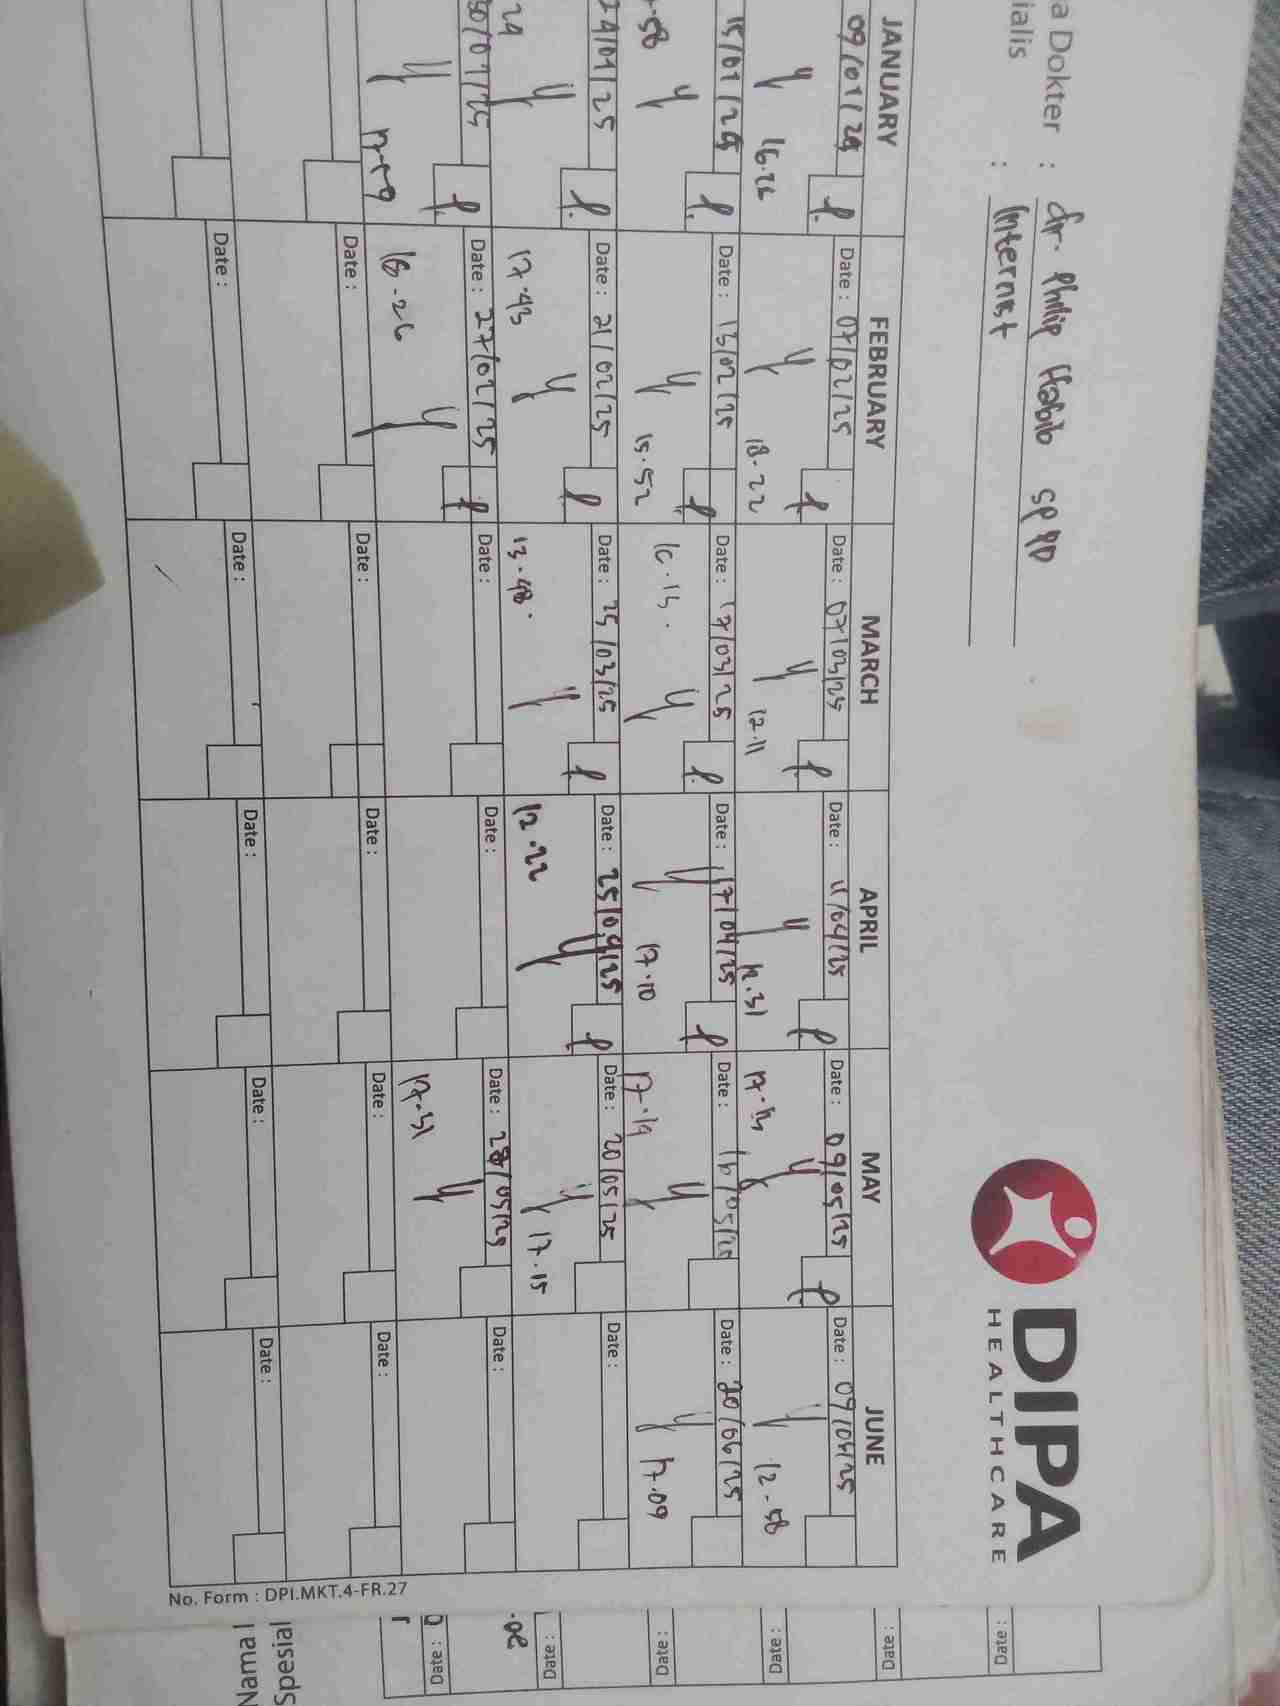 a Dokter : dr. Philip Habib SpPD
ialis : Internist
DIPA
HEALTHCARE
JANUARY FEBRUARY MARCH APRIL MAY JUNE
09/01/25 Date : 07/02/25 Date : 07/03/25 Date : 11/04/25 Date : 09/05/25 Date :
18.22 12.11 12.31 12-58
15/01/25 Date : 13/02/25 Date : 17/03/25 Date : 17/04/25 Date : Date : 20/06/25
.58 15.52 16.13. 17.10 17.19 17.09
Date : 21/02/25 Date : 25/03/25 Date : 25/04/25 Date : 20/05/25 Date :
29 17.43 13.48. 12.22 17.15
30/01/25 Date : 27/02/25 Date : Date : Date : Date :
17.31
Date : Date : Date : Date : Date :
Date : Date : Date : Date : Date :
No. Form : DPI.MKT.4-FR.27
Date :
Date :
Date :
Date :
Date :
Date :
.08
Nama
Spesial